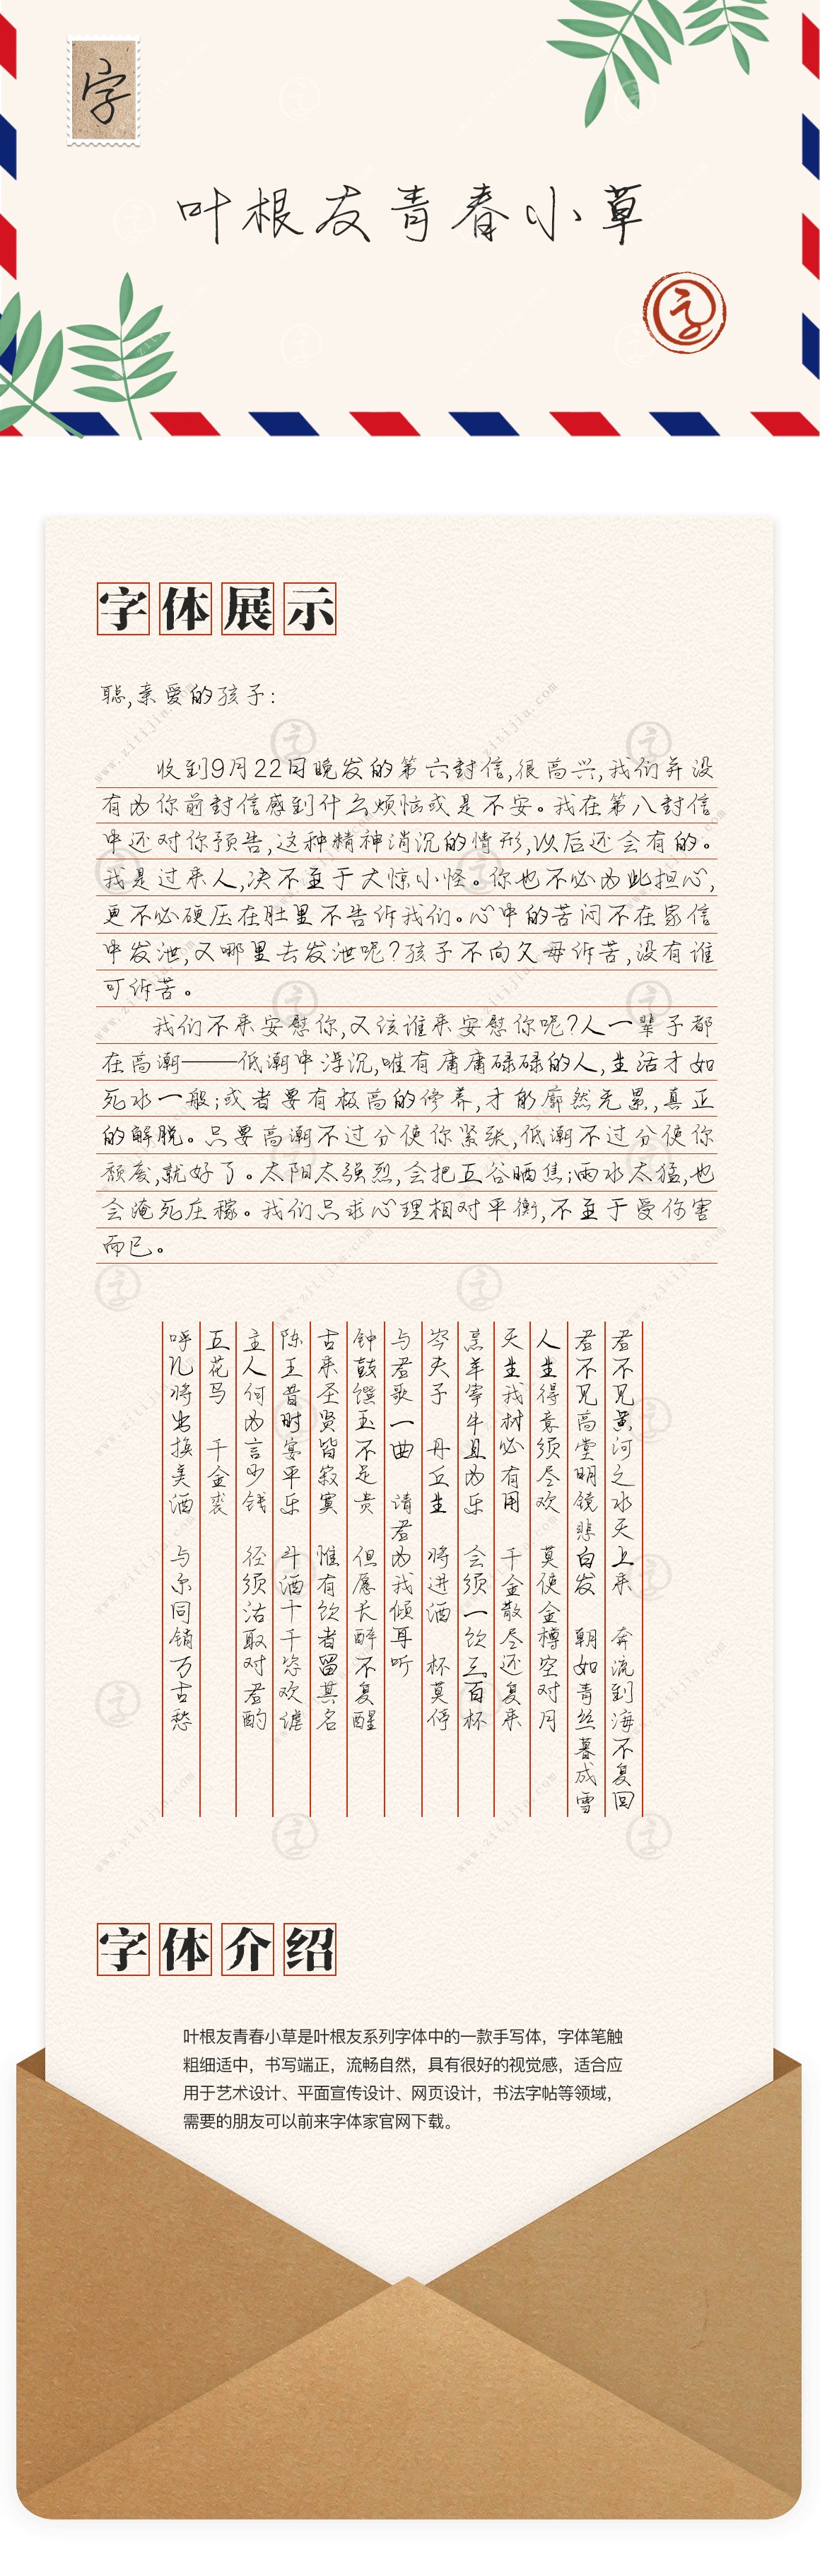 字
叶根友青春小草
字体展示
聪,亲爱的孩子:
收到9月22日晚发的第六封信,很高兴,我们并没
有为你前封信感到什么烦恼或是不安。我在第八封信
中还对你预告,这种精神消沉的情形,以后还会有的。
我是过来人,决不至于大惊小怪。你也不必为此担心,
更不必硬压在肚里不告诉我们。心中的苦闷不在家信
中发泄,又哪里去发泄呢?孩子不向父母诉苦,没有谁
可诉苦。
我们不来安慰你,又该谁来安慰你呢?人一辈子都
在高潮——低潮中浮沉,唯有庸庸碌碌的人,生活才如
死水一般;或者要有极高的修养,才能廓然无累,真正
的解脱。只要高潮不过分使你紧张,低潮不过分使你
颓废,就好了。太阳太强烈,会把五谷晒焦;雨水太猛,也
会淹死庄稼。我们只求心理相对平衡,不至于受伤害
而已。
君不见黄河之水天上来 奔流到海不复回
君不见高堂明镜悲白发 朝如青丝暮成雪
人生得意须尽欢 莫使金樽空对月
天生我材必有用 千金散尽还复来
烹羊宰牛且为乐 会须一饮三百杯
岑夫子 丹丘生 将进酒 杯莫停
与君歌一曲 请君为我倾耳听
钟鼓馔玉不足贵 但愿长醉不复醒
古来圣贤皆寂寞 惟有饮者留其名
陈王昔时宴平乐 斗酒十千恣欢谑
主人何为言少钱 径须沽取对君酌
五花马 千金裘
呼儿将出换美酒 与尔同销万古愁
字体介绍
叶根友青春小草是叶根友系列字体中的一款手写体，字体笔触
粗细适中，书写端正，流畅自然，具有很好的视觉感，适合应
用于艺术设计、平面宣传设计、网页设计，书法字帖等领域，
需要的朋友可以前来字体家官网下载。
www.zitijia.com